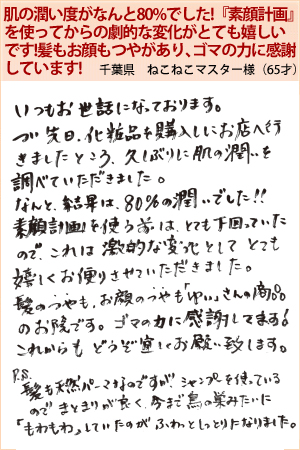 肌の潤い度がなんと80%でした!『素顔計画』
を使ってからの劇的な変化がとても嬉しい
です!髪もお顔もつやがあり、ゴマの力に感謝
しています! 千葉県 ねこねこマスター様（65才）
いつもお世話になっております。
つい先日、化粧品を購入しにお店へ行
きましたところ、久しぶりに肌の潤いを
調べていただきました。
なんと、結果は、80%の潤いでした!!
素顔計画を使う前は、とても下回っていた
ので、これは激的な変化として とても
嬉しくお便りさせていただきました。
髪のつやも、お顔のつやも「ゆい」さんの商品
のお陰です。ゴマの力に感謝してます!
これからも どうぞ宜しくお願い致します。
P.S.
髪も天然パーマなのですが、シャンプーを使っている
ので まとまりが良く、今まで鳥の巣みたいに
「もわもわ」していたのが ふわっとしっとりになりました。